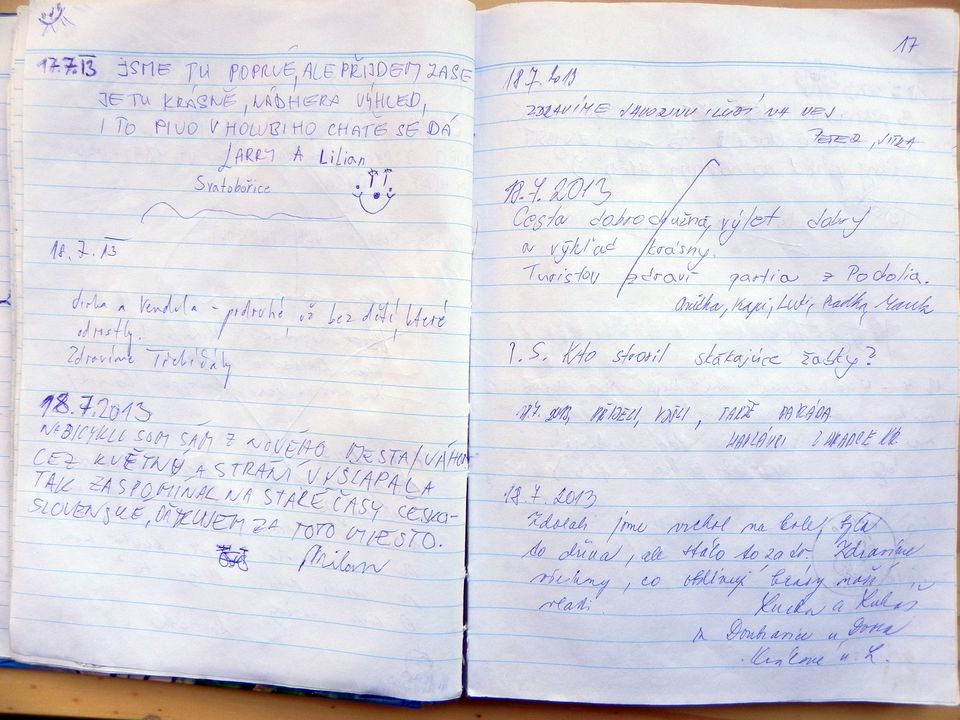 17.7.13 JSME TU POPRVÉ, ALE PŘIJDEM ZASE
JE TU KRÁSNĚ, NÁDHERA VÝHLED,
I TO PIVO V HOLUBIHO CHATĚ SE DÁ
LARRY A Lilian
Svatobořice
18.7.13
Jirka a Vendula - podruhé, už bez dětí, které
odrostly.
Zdravíme
18.7.2013
NA BICYKLI SOM SÁM Z NOVÉHO MESTA/VÁHOM
CEZ KVĚTNÚ A STRANÍ VYŠLAPAL A
TAK ZASPOMÍNAL NA STARÉ ČASY ČESKO-
SLOVENSKÉ, ĎAKUJEM ZA TOTO MIESTO.
Milan
17
18.7.2013
ZDRAVÍME JAVORINU I LIDÍ NA NEJ.
PETER, JITKA
18.7.2013
Cesta dobrodružná, výlet dobrý
a výhľad krásny.
Turistov zdraví partia z Podolia.
Kapi, Luci, Radka, Marek
P.S. Kto stratil skákajúce žabky?
18.7.2013, PŘIJELI, VIDĚLI, TAKŽE PARÁDA
Z HRADCE KR.
18.7.2013
Zdolali jsme vrchol na kole, byla
to dřina, ale stálo to za to. Zdravíme
všechny, co obdivují krásy naší
vlasti.
Lucka a Lukáš
z Doubravice u Dvora
Králové n. L.